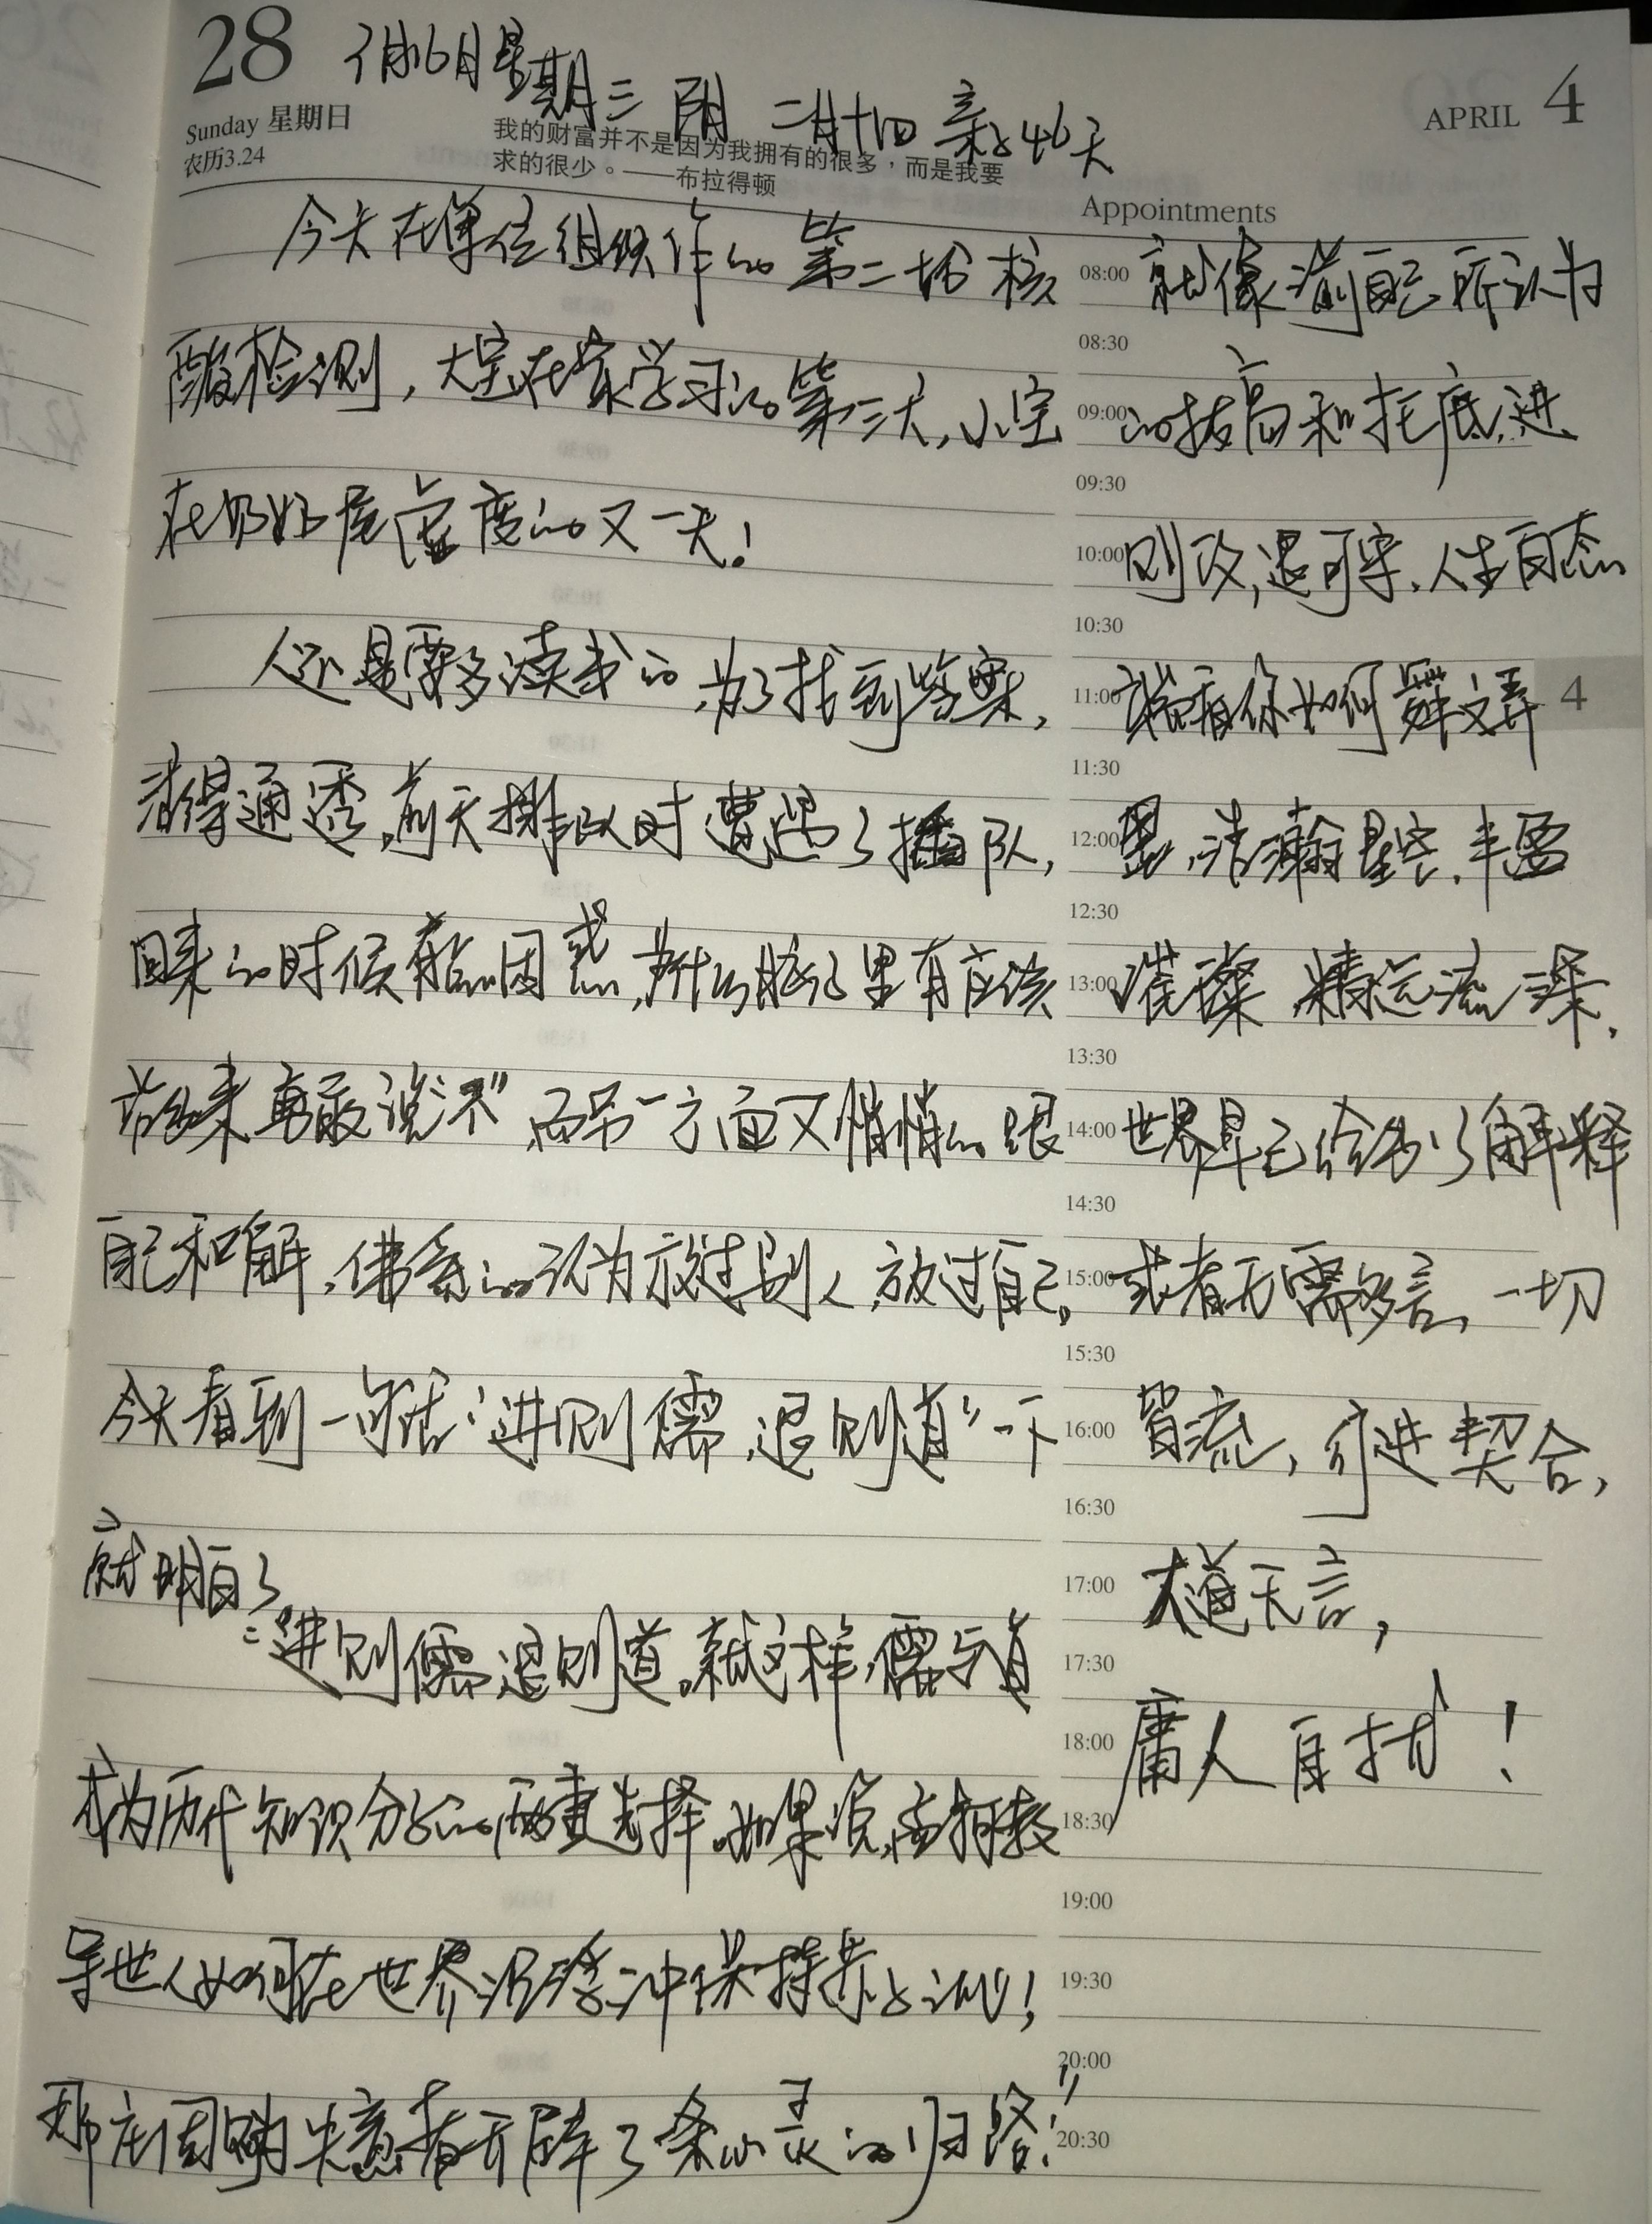 28
Sunday 星期日
农历3.24
月16日星期三 阴 二月十四 亲子46天
我的财富并不是因为我拥有的很多，而是我要
求的很少。——布拉得顿
APRIL 4
Appointments
今天在单位组织作的第二拾核
酸检测，大宝在家学习的第三天，小宝
在奶奶度的又一天！
人还是要多读书的，为了找到答案，
看得通透。前天排队时遭遇了插队，
回来的时候有点困惑，为什么脑子里有应该
站出来勇敢说“不”，而另一方面又悄悄的跟
自己和解，佛系的认为放过别人，放过自己。
今天看到一句话：“进则儒，退则道”一下
就明白了。
“进则儒，退则道。就这样，儒与道
成为历代知识分子的两重选择。如果说，孟相教
导世人如何在世界沉浮中保持赤子之心！
那庄周唤失意者开辟了条心灵的归路！”
08:00
08:30
09:00
09:30
10:00
10:30
11:00
11:30
12:00
12:30
13:00
13:30
14:00
14:30
15:00
15:30
16:00
16:30
17:00
17:30
18:00
18:30
19:00
19:30
20:00
20:30
就像道前自己所认为
的拔高和托底，进
则改，退可守，人生百态
端看你如何舞文弄
墨，浩瀚星空，丰盈
璀璨，精远流深，
世界早已给出了解释
或者无需多言，一切
皆流，行进契合，
大道无言，
庸人自扰！
4